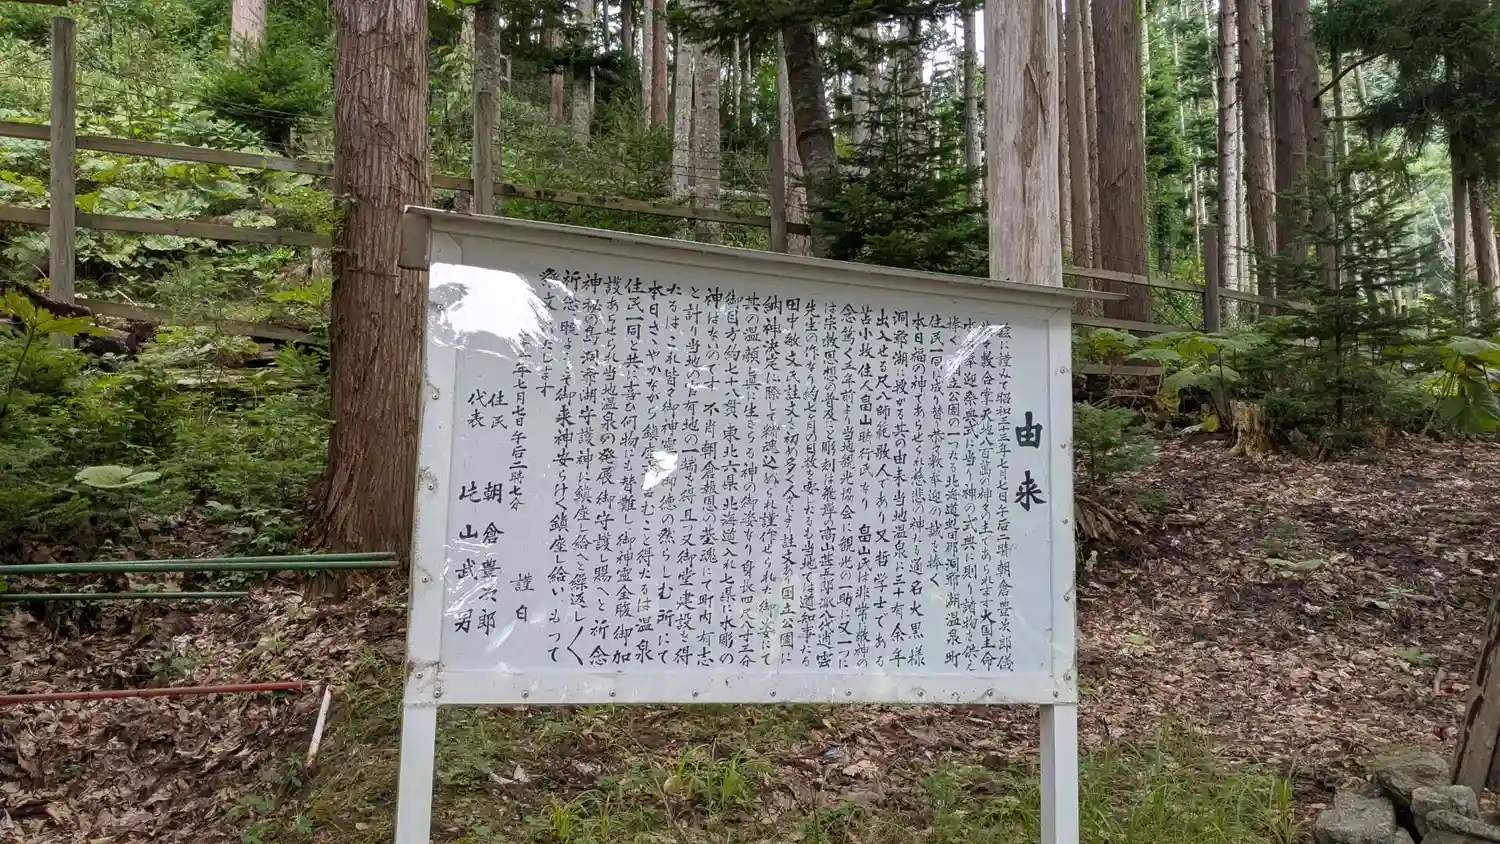 由来
に謹んで昭和三十三年七月七日午后二時朝倉豊次郎儀
敬合掌天地八百萬の神々の主であられます大国主命
奉迎祭典式に当り神の式典に則り諸物を供え
捧く 国立公園の一たる北海道虻田郡洞爺湖温泉町
住民一同に成り替り恭々敬奉迎の誠を捧く
本日福の神であらせられ慈悲の神たる通名大黒様
洞爺湖に授かる其の由来当地温泉に三十有余年
出入せる尺八師範歌人であり又哲学士である
苫小牧住人畠山勝行氏あり 畠山氏は非常に敬神の
念篤く三年前より当地観光協会に観光の一助に又一つに
は宗教思想の普及にと彫刻は飛騨の高山甚五郎派八代通雲
先生の作なり約七ヶ月の日数を要したるも当地では道知事たる
田中敏文氏註文を初め多くの人により註文あり 国立公園に
納神決定に際して精魂込められ謹作せられた御姿にて
其の温顔真に生きたる神の御姿なり身長四尺八寸三分
御目方約七十八貫、東北六県北海道入れ七県に木彫の
神はないのです 不肖朝倉報恩の赤魂にて町内有志
と計り当地の私有地の一端を得且又御堂建設を得
たるはこれ皆々御神霊 御徳の然らしむ所にて
本日ささやかながら鎮座 むこと得たるは温泉
住民一同と共に喜び何物にも替難し御神霊全腹御加
護あらせられ当地温泉の発展御守護し賜へと祈念
神 洞爺湖守護神に鎮座し給へと繰返し〱
祈念 御来神安らけく鎮座し給いもつて
します
三年七月七日午后二時七分
謹白
住民 朝倉豊次郎
代表 北山武男